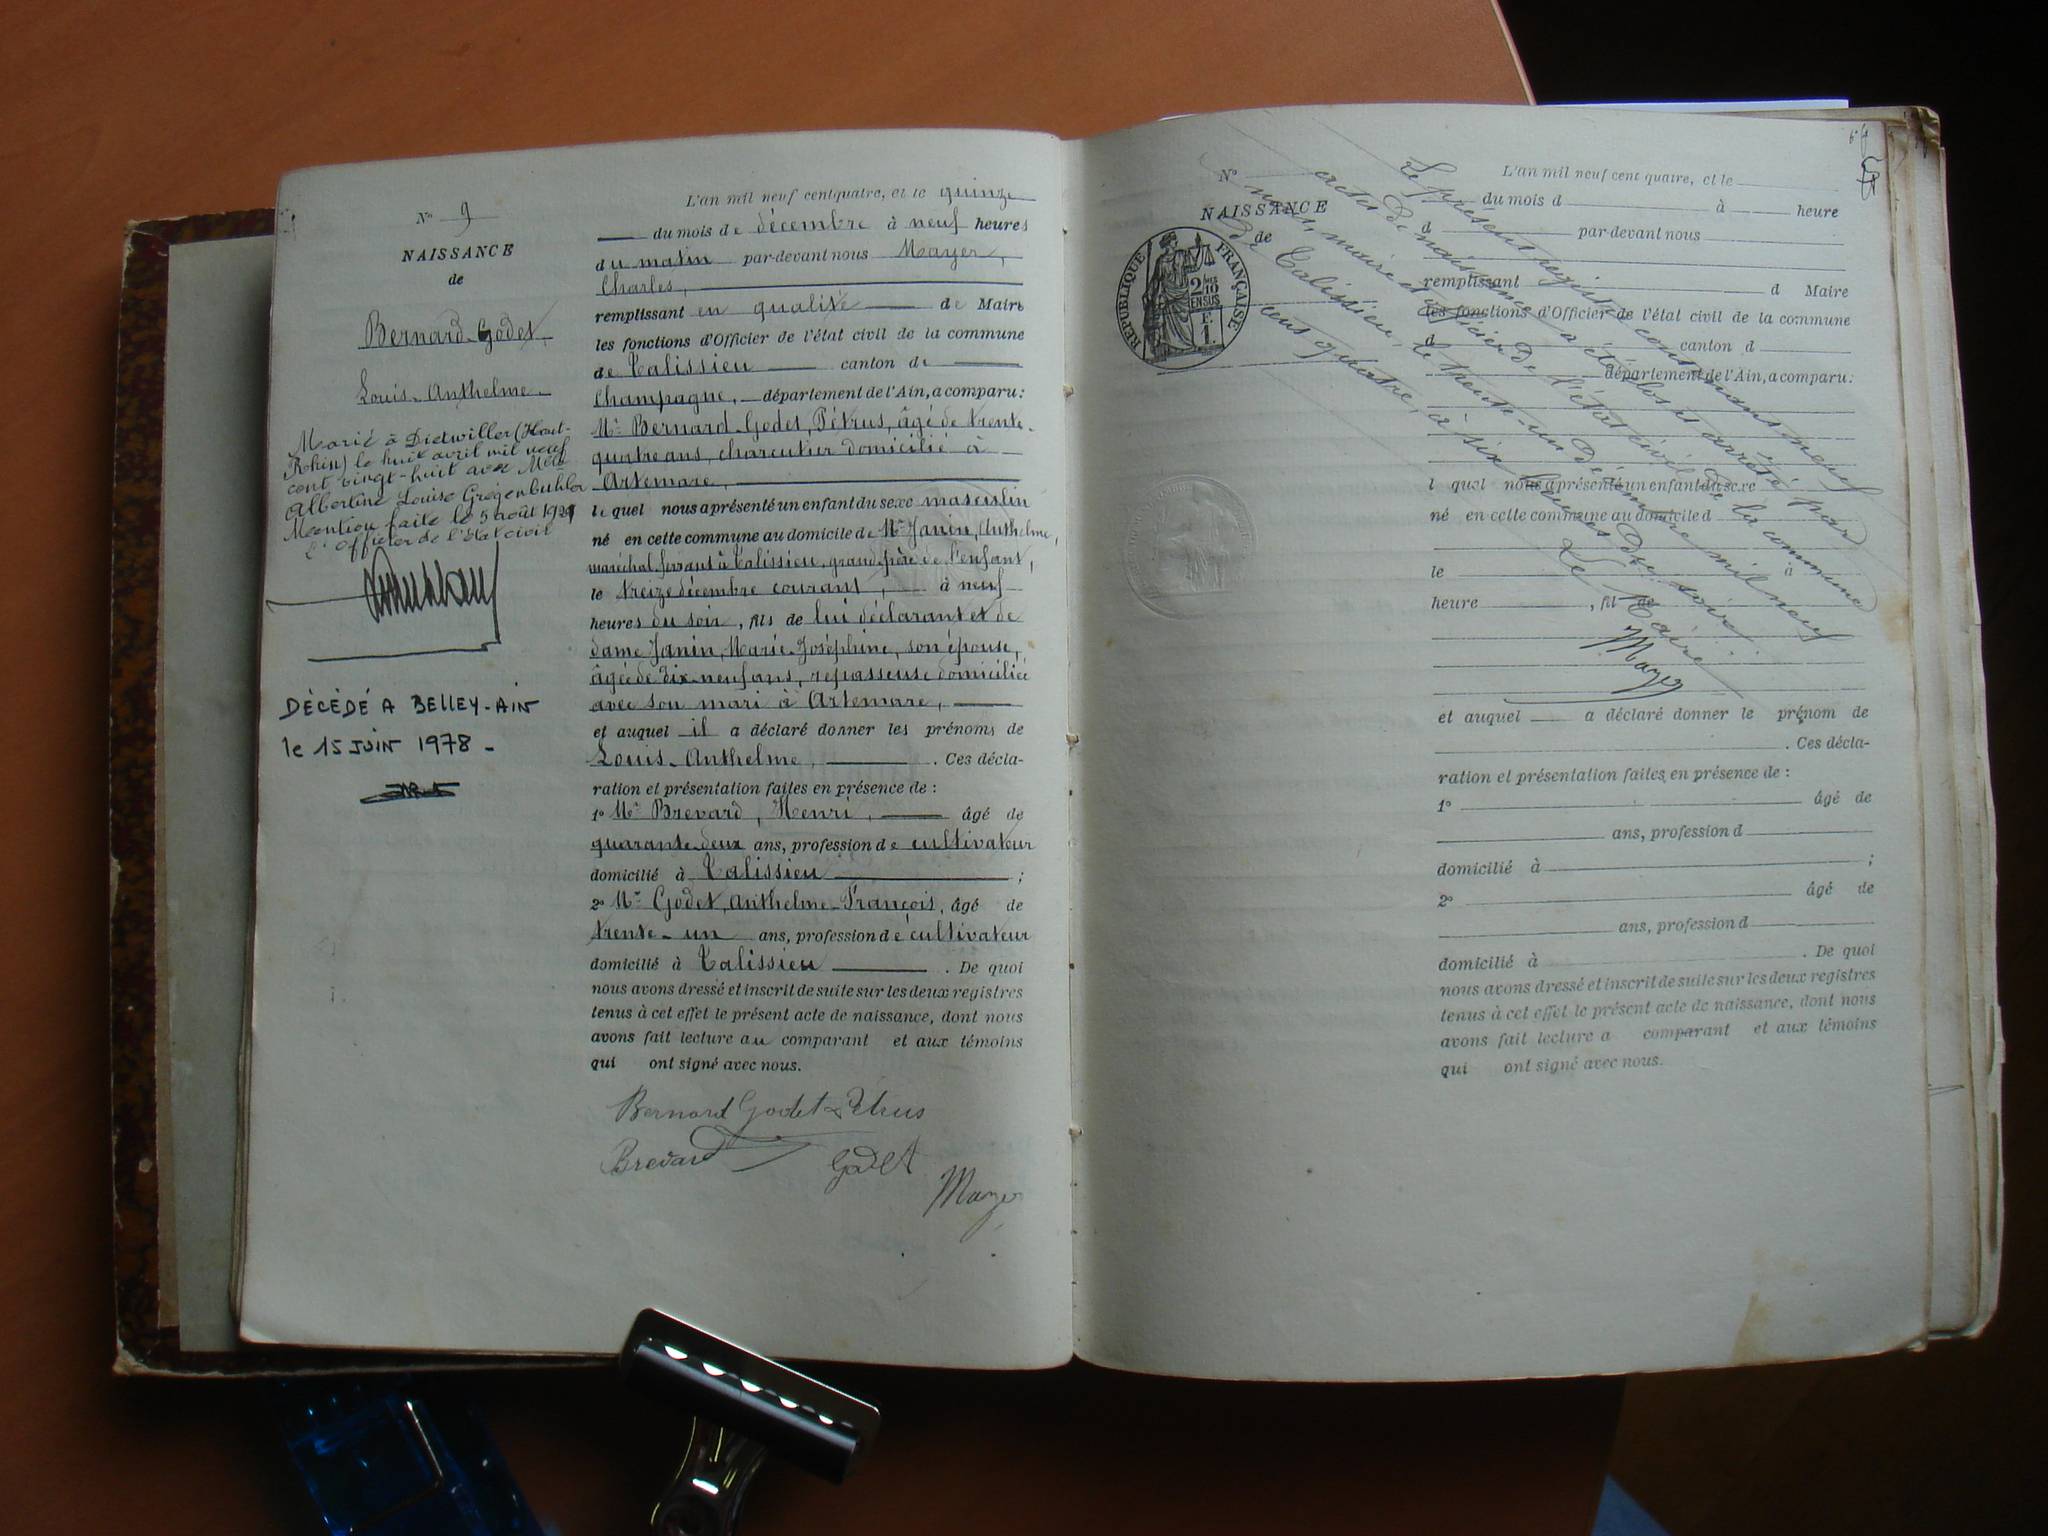 N° 9
NAISSANCE
de
Bernard-Godet
Louis-Anthelme-
Marié à Dietwiller (Haut-
Rhin) le huit avril mil neuf
cent vingt-huit avec Melle
Albertine Louise Gregenbuhler
Mention faite le 5 août 1929
L'Officier de l'état civil
DÉCÉDÉ A BELLEY-AIN
le 15 JUIN 1978 -
L'an mil neuf cent quatre, et le quinze
du mois de décembre à neuf heures
du matin par-devant nous Mayer,
Charles,
remplissant en qualité de Maire
les fonctions d'Officier de l'état civil de la commune
de Talissieu canton de
Champagne, département de l'Ain, a comparu:
Mr Bernard-Godet, Pétrus, âgé de trente-
quatre ans, charcutier domicilié à
Artemare,
le quel nous a présenté un enfant du sexe masculin
né en cette commune au domicile de Mr Janin, Anthelme,
maréchal ferrant à Talissieu, grand père de l'enfant,
le treize décembre courant, à neuf
heures du soir, fils de lui déclarant et de
dame Janin, Marie-Joséphine, son épouse,
âgée de dix-neuf ans, repasseuse domiciliée
avec son mari à Artemare,
et auquel il a déclaré donner les prénoms de
Louis-Anthelme, . Ces décla-
ration et présentation faites en présence de :
1° Mr Brevard, Henri, âgé de
quarante-deux ans, profession de cultivateur
domicilié à Talissieu ;
2° Mr Godet, Anthelme-François, âgé de
trente-un ans, profession de cultivateur
domicilié à Talissieu . De quoi
nous avons dressé et inscrit de suite sur les deux registres
tenus à cet effet le présent acte de naissance, dont nous
avons fait lecture au comparant et aux témoins
qui ont signé avec nous.
Bernard Godet Pétrus
Brevard Godet
Mayer
N°
NAISSANCE
de
RÉPUBLIQUE FRANÇAISE
2 10
EN SUS
F
1
L'an mil neuf cent quatre, et le
du mois d à heure
d par-devant nous
remplissant d Maire
les fonctions d'Officier de l'état civil de la commune
d canton d
département de l'Ain, a comparu:
l quel nous a présenté un enfant du sexe
né en cette commune au domicile d
le à
heure , fil de
et auquel a déclaré donner le prénom de
. Ces décla-
ration et présentation faites en présence de :
1° âgé de
ans, profession d
domicilié à ;
2° âgé de
ans, profession d
domicilié à . De quoi
nous avons dressé et inscrit de suite sur les deux registres
tenus à cet effet le présent acte de naissance, dont nous
avons fait lecture a comparant et aux témoins
qui ont signé avec nous.
Le présent registre contenant neuf
actes de naissance a été clos et arrêté par
nous, maire et officier de l'état civil de la commune
de Talissieu, le trente-un décembre mil neuf
cent quatre, à six heures du soir.
Le Maire
Mayer